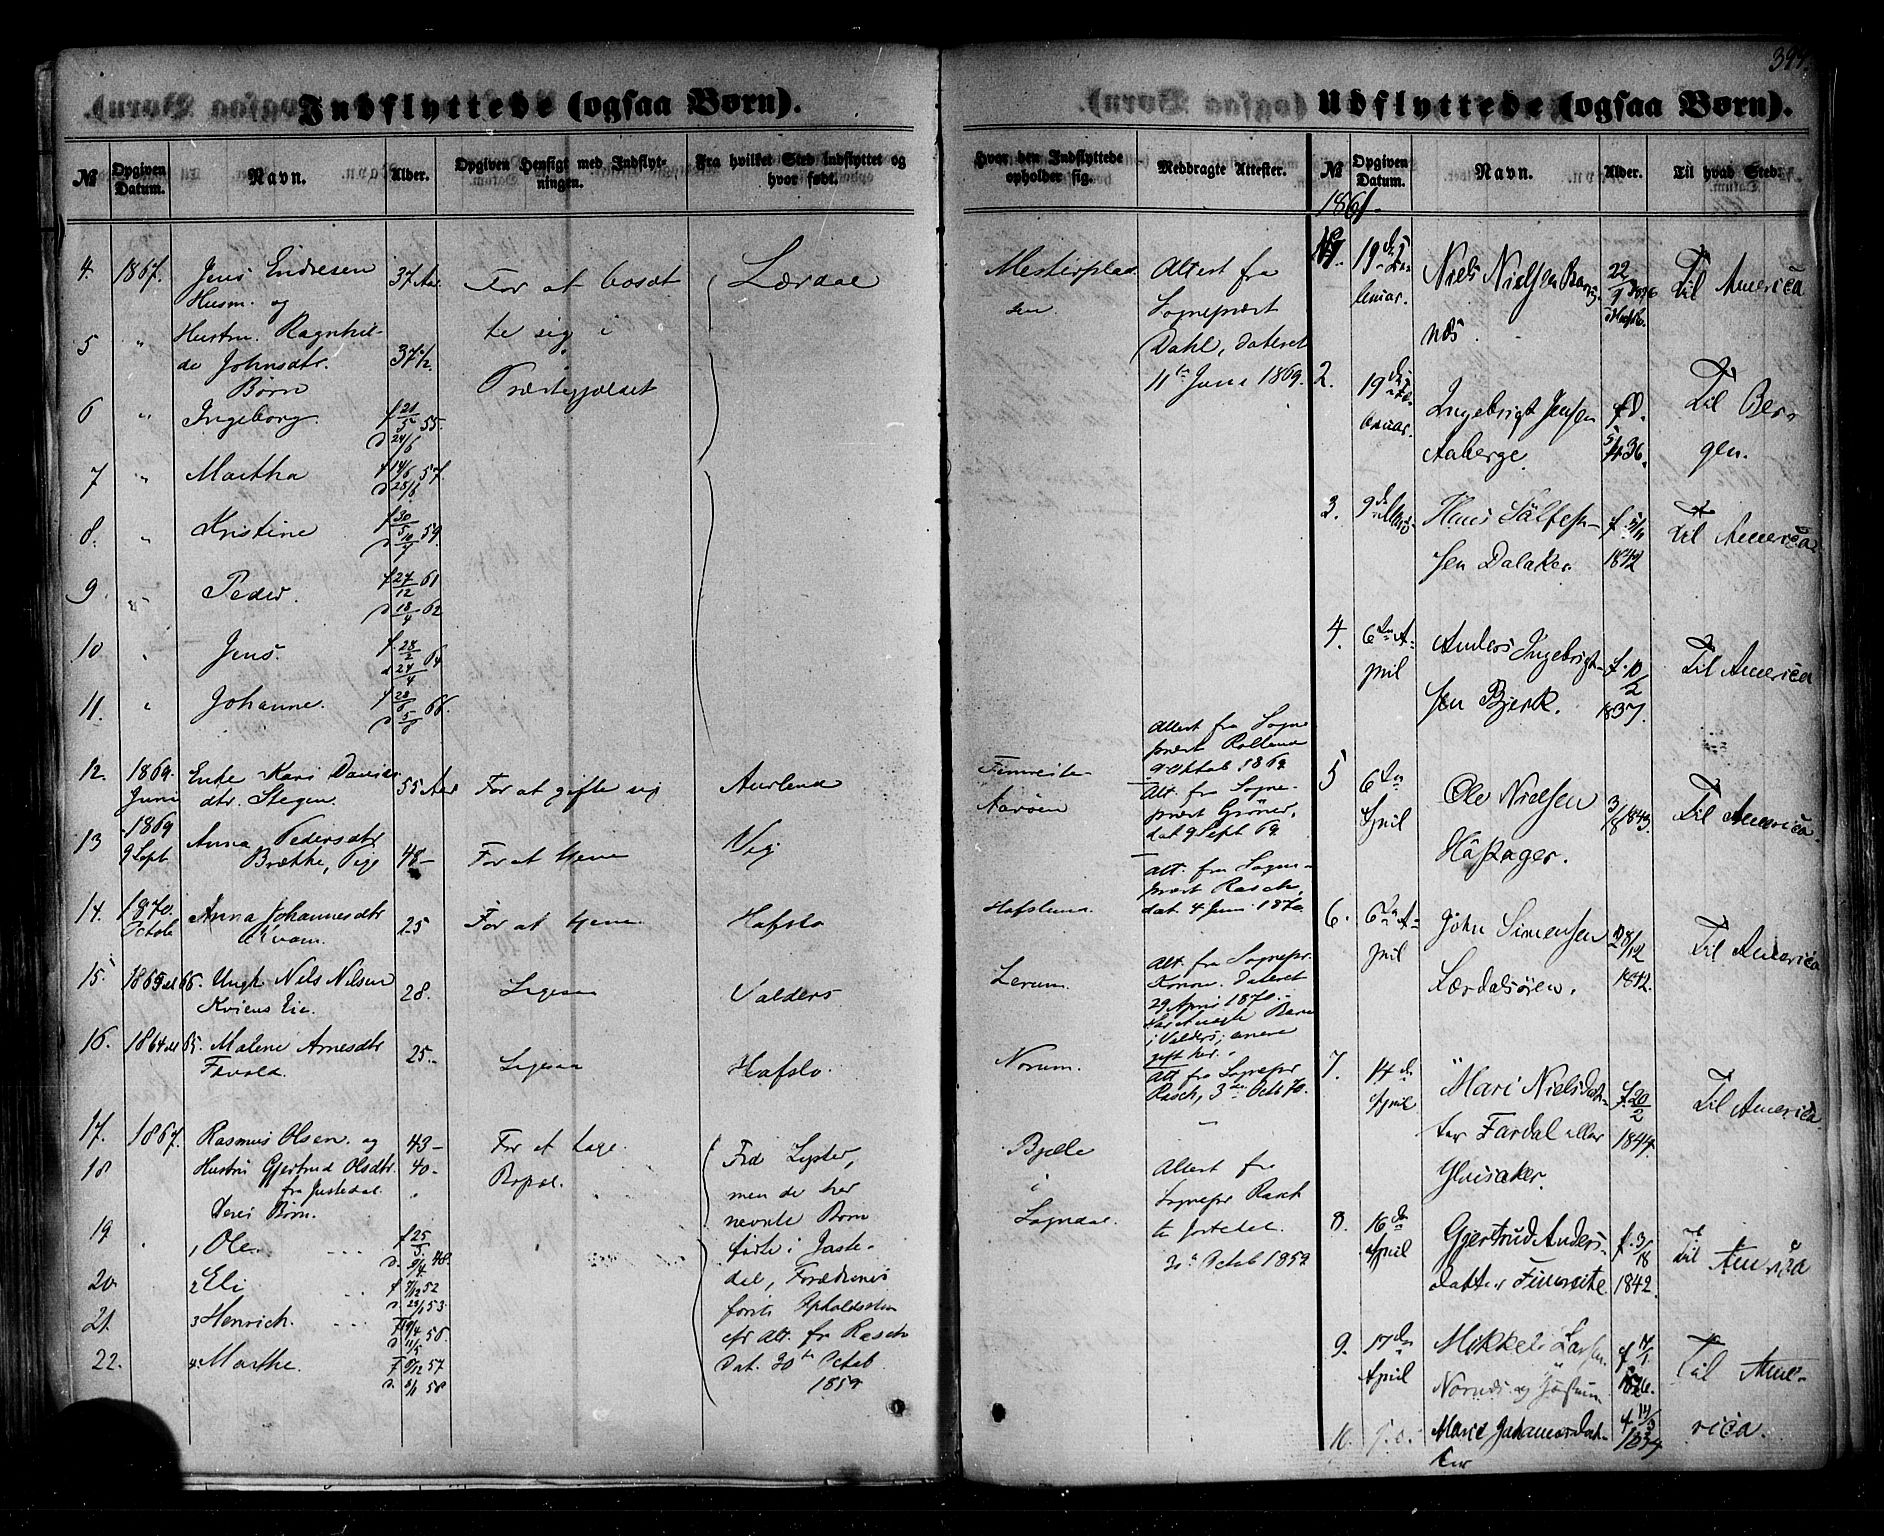 394.
Indflyttede (ogsaa Børn).
№
Opgiven Datum.
Navn.
Alder.
Opgiven Hensigt med Indflytningen.
Fra hvilket Sted Indflyttet og hvor født.
4. 1867. Jens Endresen 37 Aar For at bosæt Lærdal
Husm. og
5 " Hustru Ragnhil- te sig i
de Johnsdtr. 37½
Børn Præstegjældet
6 " Ingeborg. f 21/5 55.
d 24/6
7 " Martha f 14/6 57.
d 25/6
8. " Kristine f 30/5 59.
d 10/7
9. " Peder. f 27/12 61
d 18/4 62
10 " Jens. f 28/2 64
d 24/4
11. " Johanne. f 28/6 66.
d 5/8
12. 1869. Enke Kari Davids 55 Aar For at gifte sig Aurland
Juni dtr. Stegen.
13 1869 Anna Pedersdtr
9 Sept Brække, Pige 48- For at tjene Vig
14. 1870. Anna Johannesdtr 25 For at tjene Hafslo
Octob Kvam.
15. 1865 el 66. Ungk. Nils Nilsen 28. Ligesaa Valders
Kviens Eie.
16. 1864 el 65. Malene Arnesdtr 25.- Ligesaa Hafslo.
17. 1867. Rasmus Olsen og 43- For at tage Fra Lyster,
18 Hustru Gjertrud Olsdtr. 40- Bopæl. men de her
fra Justedal nevnte Børn
Deres Børn.
19 1 Ole f 25/5 fødte i Juste-
20 2 Eli f 7/12 52 dal, Forældrenes
d. 23/1 53.
21. 3 Henrich. f 19/4 56. første Opholdssted
d 11/5 efr Att. fr Rasch
22. 4 Marthe f 9/12 57 dat. 30te Octob
d. 8/1 58 1859
Udflyttede (ogsaa Børn).
Hvor den Indflyttede opholder sig.
Meddragte Attester.
№
Opgiven Datum.
Navn.
Alder.
Til hvad Sted.
Mesterplad
sen
Attest fra
Sognepræst
Dahl, dateret
11te Juni 1869.
Attest fra Sogne
præst
9 Oktob. 1869
Fimreite
Aarøen
Att. fr. Sogne-
præst Grøner,
dat 9 Sept 69
Att. fra Sogne-
præst Rasch,
Hafslund. dat. 4 Juni 1870.
Att. fra Sognepr.
Lerum. dateret
29 April 1870.-
i Valders,
gift her.-
Norum. Att fra Sognepr
Rasch, 3de Octb 70.
Bjelle
i
Sogndal.
Attest fra
Sognepr Rasch
Octob 1859
1861.
1. 19de Februar. Niels Nielsen
næs. 22/9 Til America
2. 19de Februar. Ingebrigt Jensen
Aaberge. fD. 5/4 36. Til Ber-
gen.
3. 9de
sen Dalaker. 1842 Til America.
4. 6te A-
pril Anders Ingebrigt-
sen Bjerk. f. 10/2
1837. Til America
5 6te
April Ole Nielsen
3/8 1843. Til America.
6. 6te A-
pril John Simensen
Lærdalsøren. 28/12
1842. Til America
7. 14de
April Mari Nielsdat-
ter Fardal eller
f. 20/2
1844. Til America.
8. 16de
April Gjertrud Anders-
datter Fimreite f. 3/8
1842. Til America
9. 17de
April Mikkel Larsen
f 17/1
1826. Til Ame-
10. Marie Johannesdat-
ter f rica.